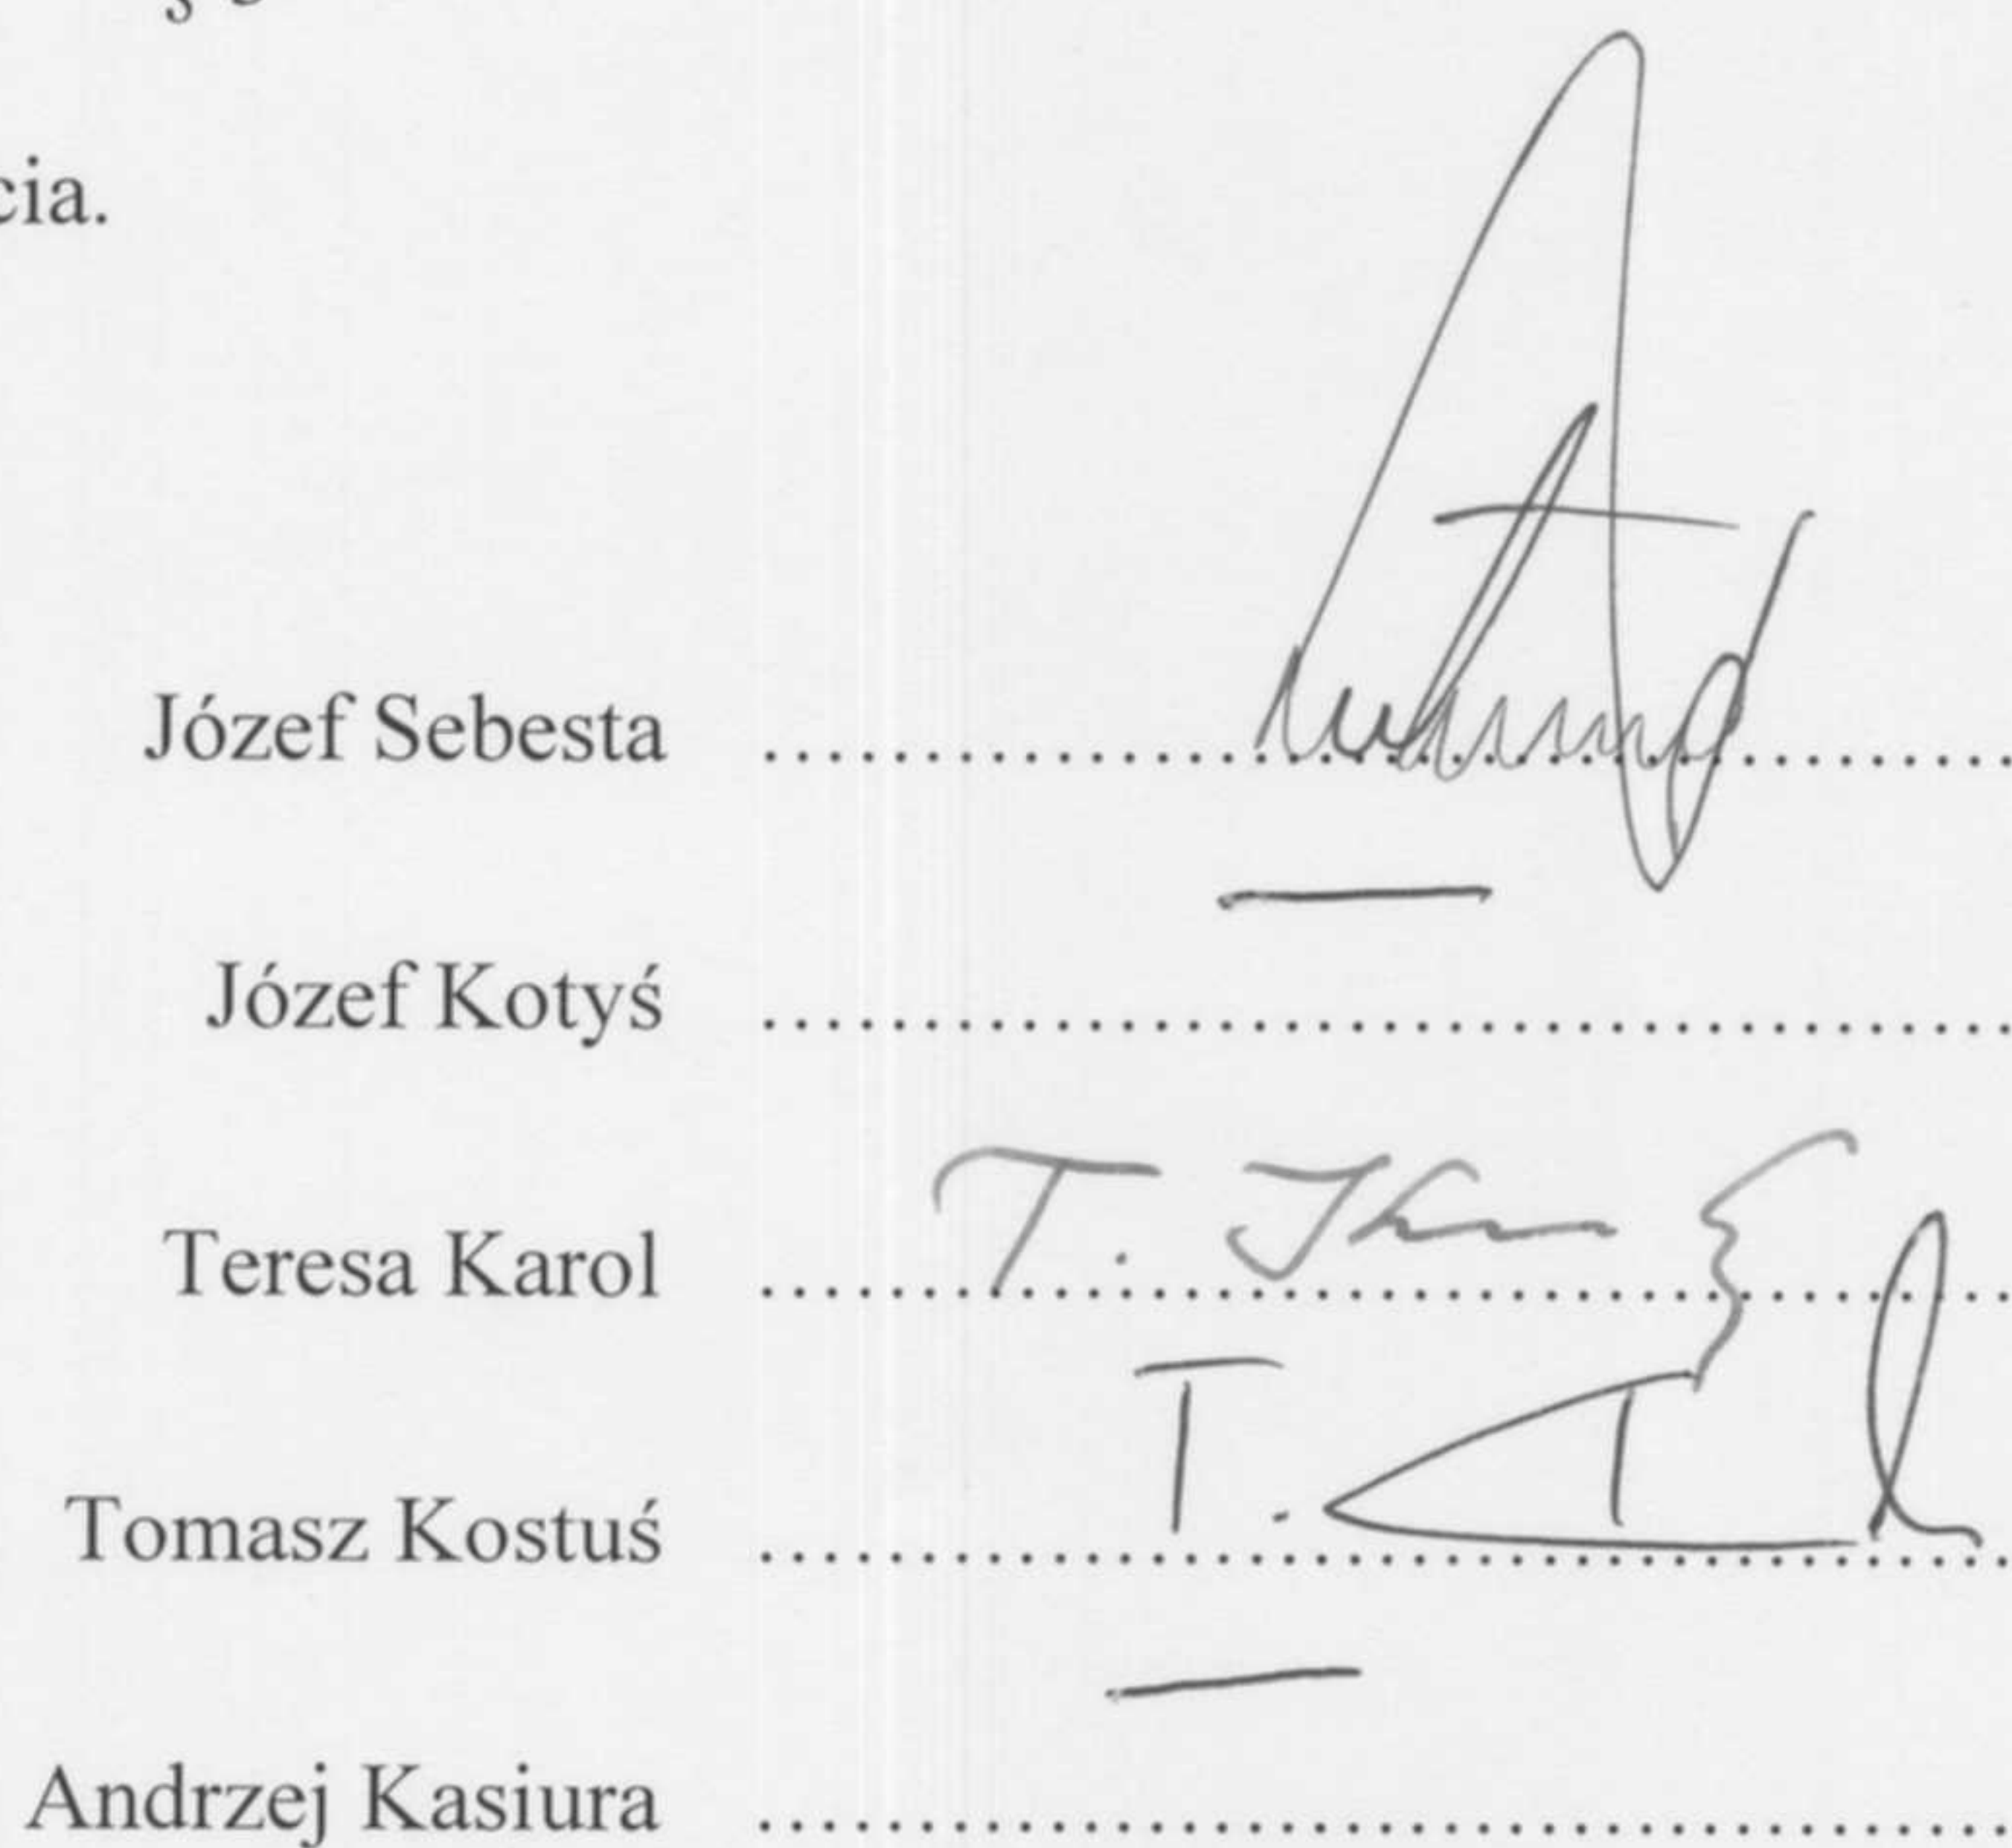 cia.
Józef Sebesta ........................................
Józef Kotyś ........................................
Teresa Karol ........................................
T.
Tomasz Kostuś ........................................
T.
Andrzej Kasiura ........................................